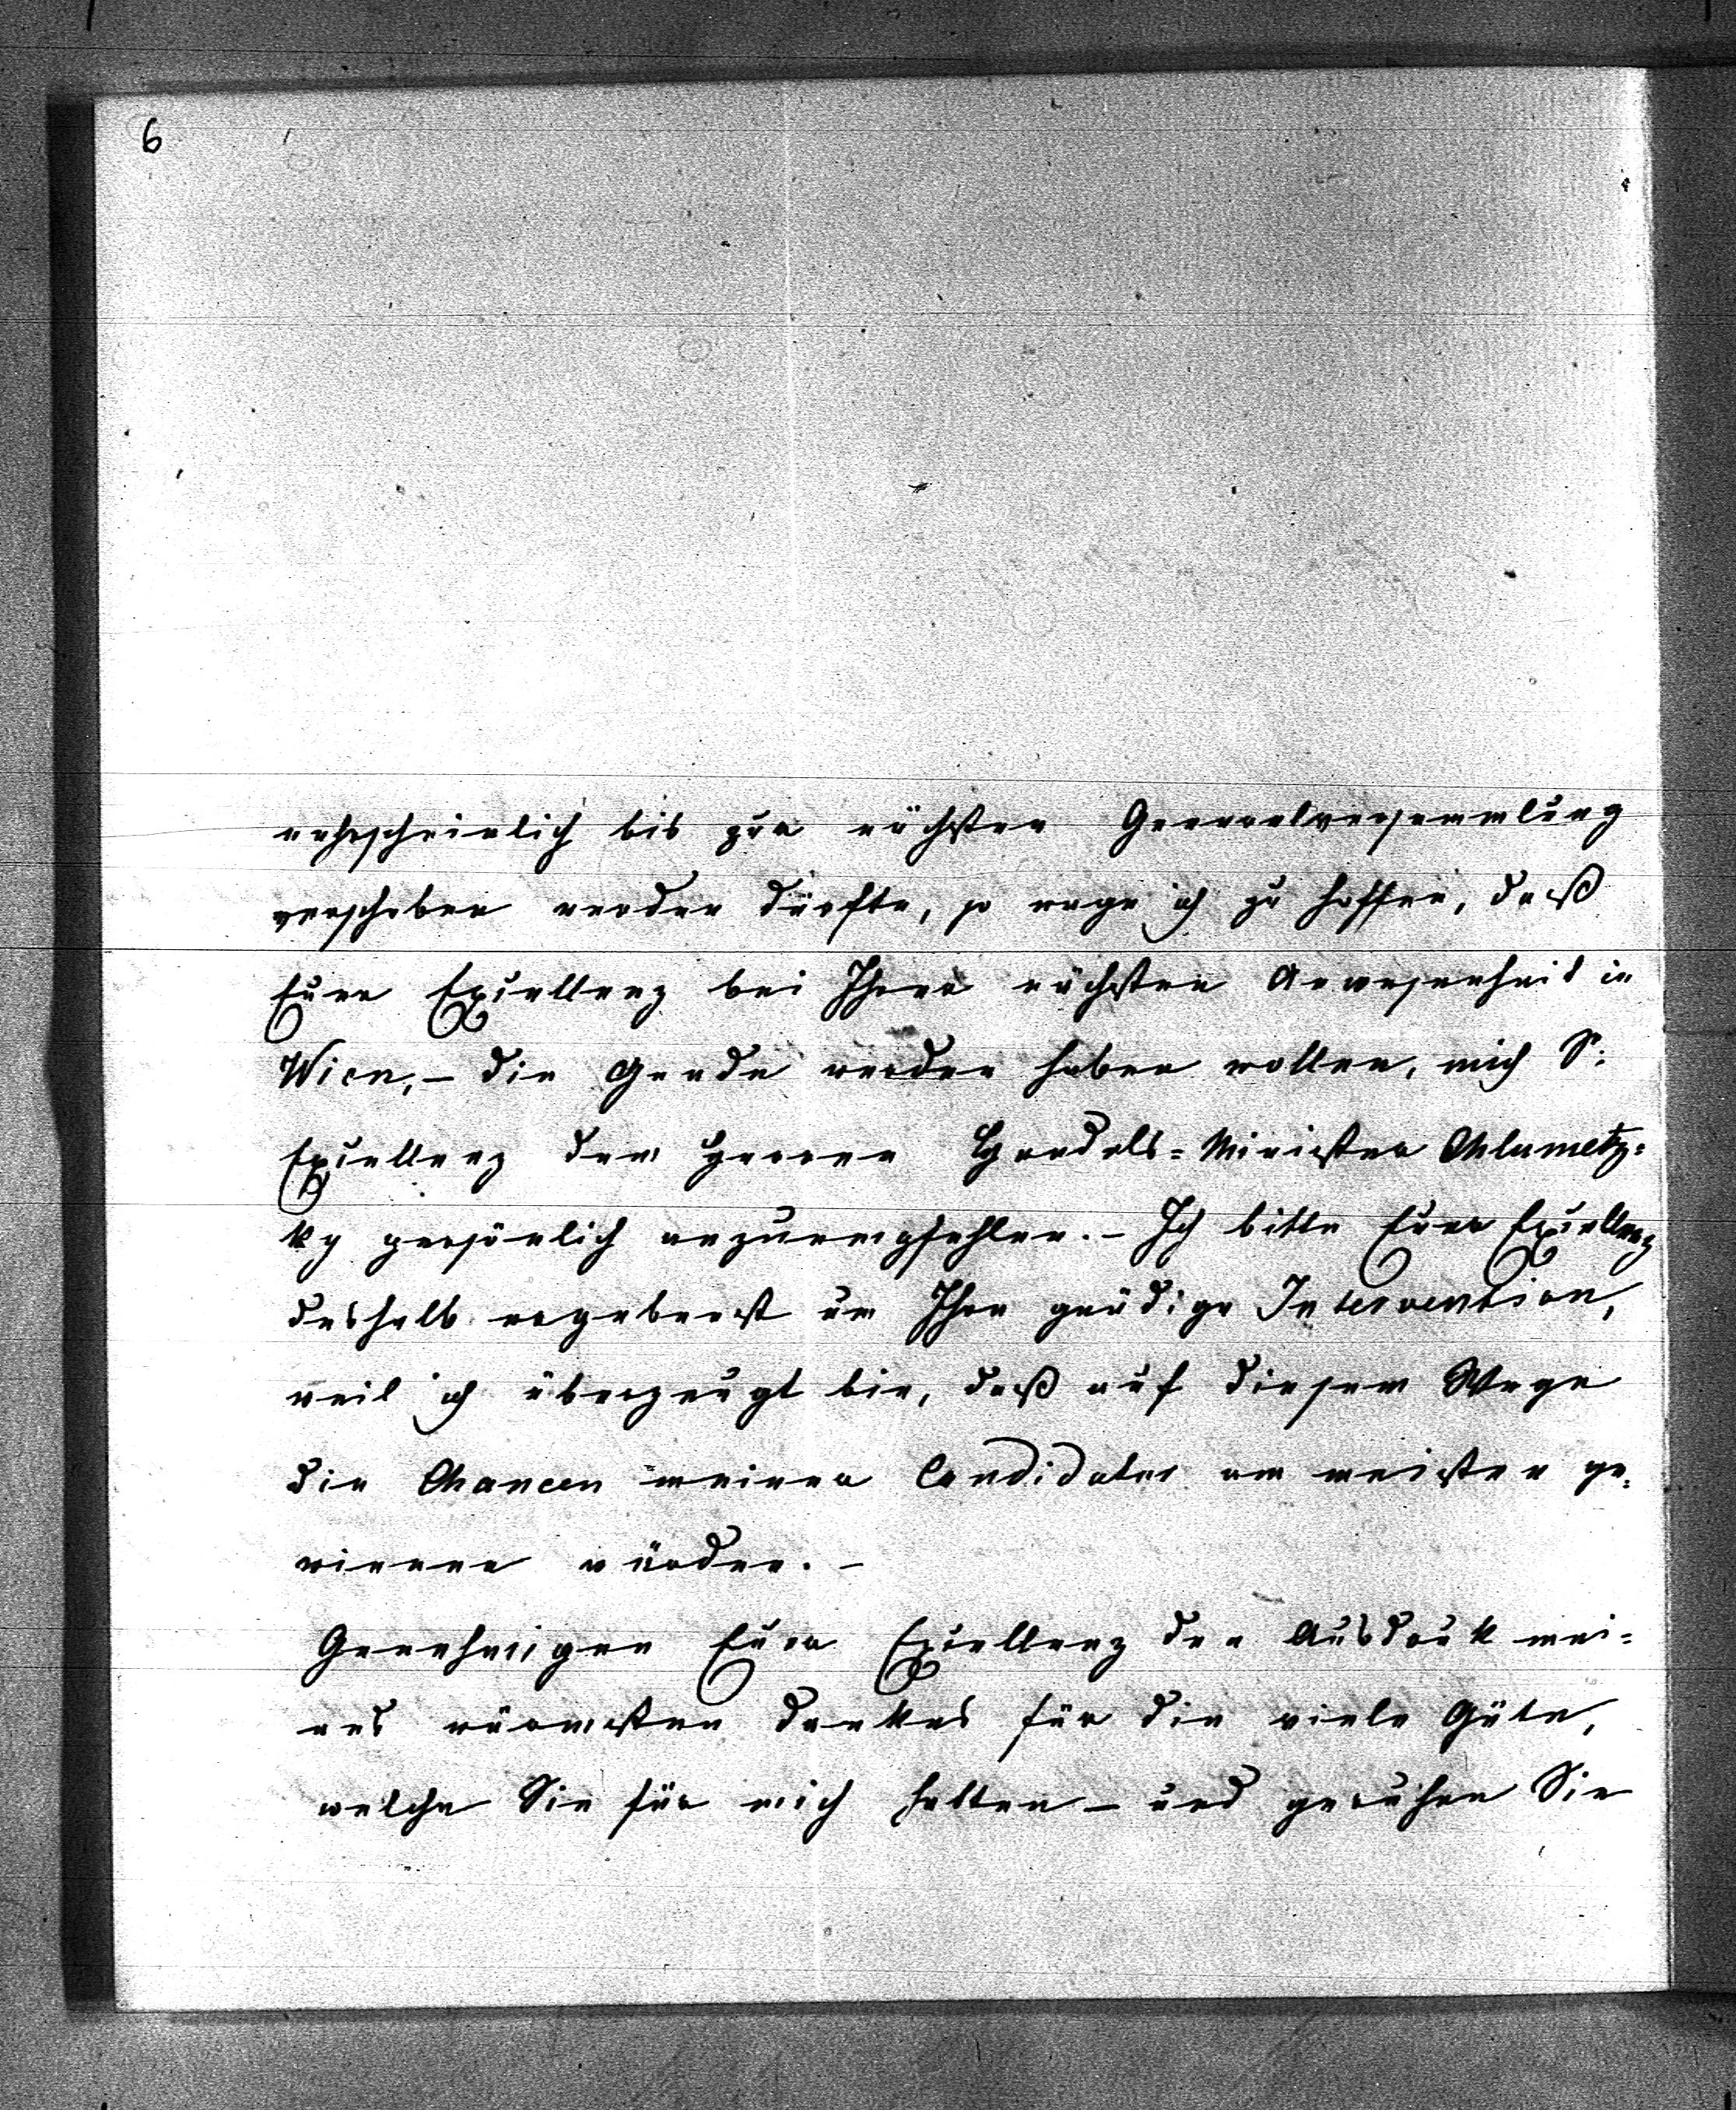 6
wahrscheinlich bis zur nächsten Generalversammlung
verschoben werden dürfte, so wage ich zu hoffen, daß
Euer Exzellenz bei Ihrer nächsten Anwesenheit in
Wien, – die Gnade werden haben wollen, mich Sr:
Exzellenz dem Herren Handels= Minister Chlumetz=
ky persönlich anzuempfehlen. – Ich bitte Euer Exzellenz
deshalb ergebenst um Ihre gnädige Intervention,
weil ich überzeugt bin, daß auf diesem Wege
die Chancen meiner Candidatur am meisten ge=
winnen würden. –
Genehmigen Euer Exzellenz den Ausdruck mei=
nes wärmsten Dankes für die viele Güte,
welche Sie für mich hatten – und geruhen Sie